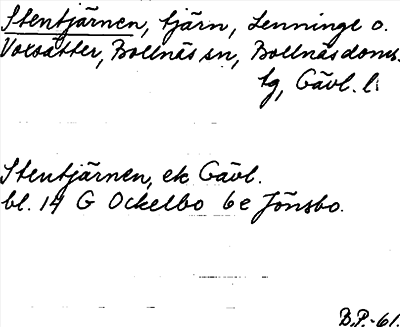 Stentjärnen, tjärn, Lenninge o.
Voxsätter, Bollnäs sn, Bollnäs doms.
tg, Gävl. l.
Stentjärnen, ek Gävl.
bl. 14 G Ockelbo 6e Jönsbo.
B.P.-61.